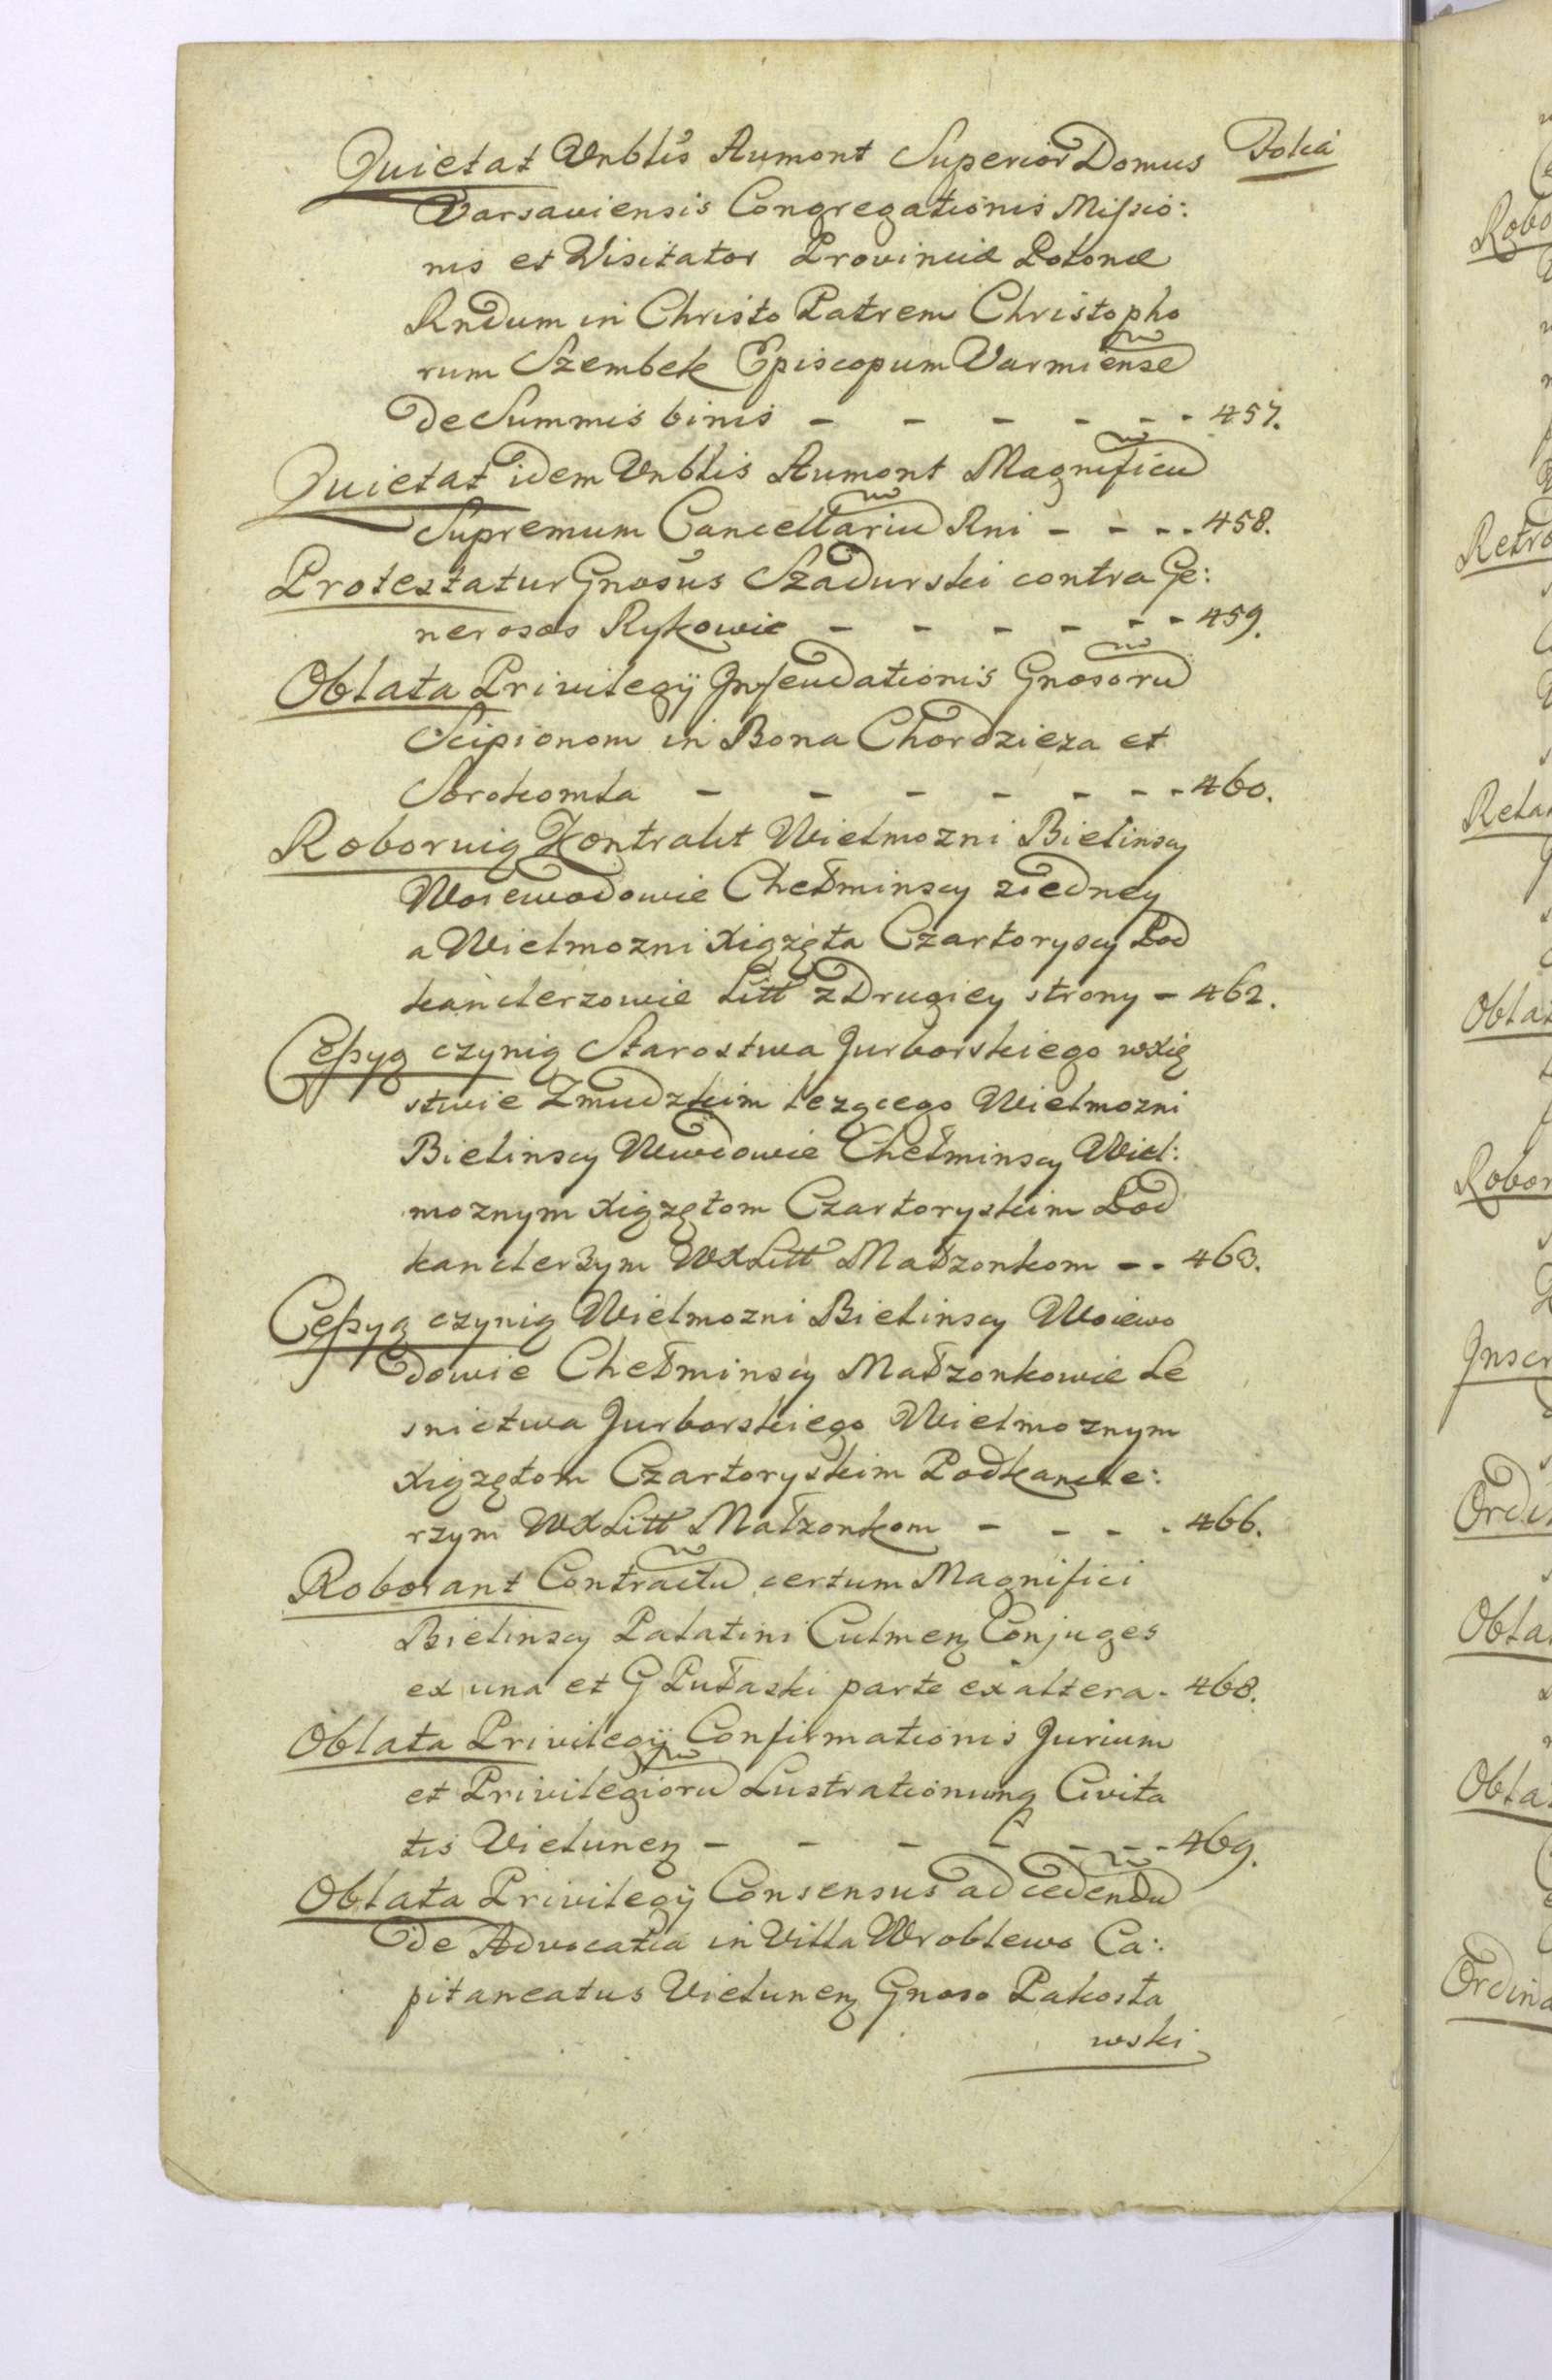 Quietat Vnblis Aumont Superior Domus Folia
Varsaviensis Congregationis Missio:
nis et Visitator Provinciæ Polonæ
Rndum in Christo Patrem Christopho
rum Szembek Episcopum Varmiense
de Summis binis - - - - - - 457.
Quietat idem Vnblis Aumont Magnificũ
Supremum Cancellariũ Rni - - - - 458.
Protestatur Gnosus Szadurski contra Ge:
nerosos Rykowie - - - - - - 459.
Oblata Privilegÿ Infeudationis Gnosorũ
Scipionom in Bona Chordzieza et
Sorokomla - - - - - - - 460.
Roboruią Kontrakt Wielmozni Bielinscy
Woiewodowie Chełminscy ziedney
a Wielmozni Xiązęta Czartoryscy Pod
kanclerzowie Litt z Drugiey strony - 462.
Cessyą czynią Starostwa Jurborskiego wXię
stwie Zmudzkim lezącego Wielmozni
Bielinscy Wwdowie Chełminscy Wiel:
moznym Xiązętom Czartoryskim Pod
kanclerzym WXLitt Małzonkom - - 463.
Cessyą czynią Wielmozni Bielinscy Woiewo
dowie Chełminscy Małzonkowie Le
snictwa Jurborskiego Wielmoznym
Xiązętom Czartoryskim Podkancle:
rzym WXLitt Małzonkom - - - - 466.
Roborant Contractũ certum Magnifici
Bielinscy Palatini Culmenz Conjuges
ex una et G Pułaski parte ex altera - 468.
Oblata Privilegÿ Confirmationis Jurium
et Privilegiorũ Lustrationumq Civita
tis Vielunenz - - - - - - - 469.
Oblata Privilegÿ Consensus ad cedendũ
de Advocatia in Villa Wroblewo Ca:
pitaneatus Vielunenz Gnoso Pakosła
wski